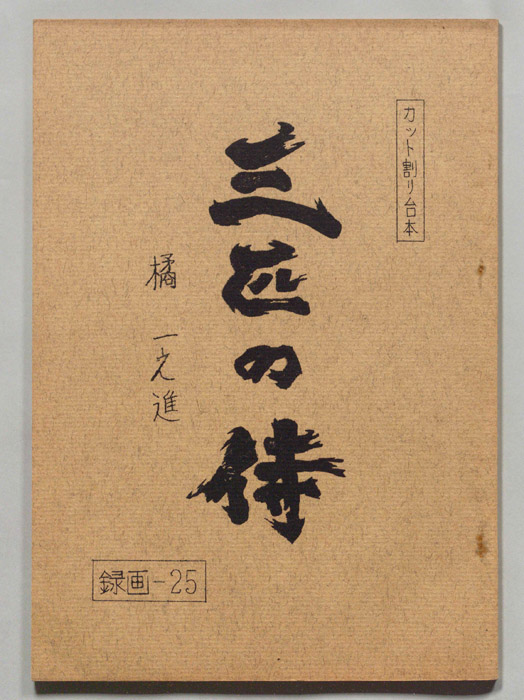 カット割り台本
三匹の侍
橘 一之進
録画-25